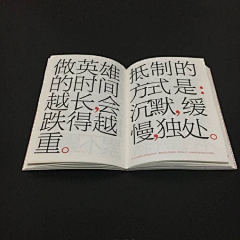 做英雄
的时间
越长,会
跌得越
重。
抵制的
方式是:
沉默,缓
慢,独处。